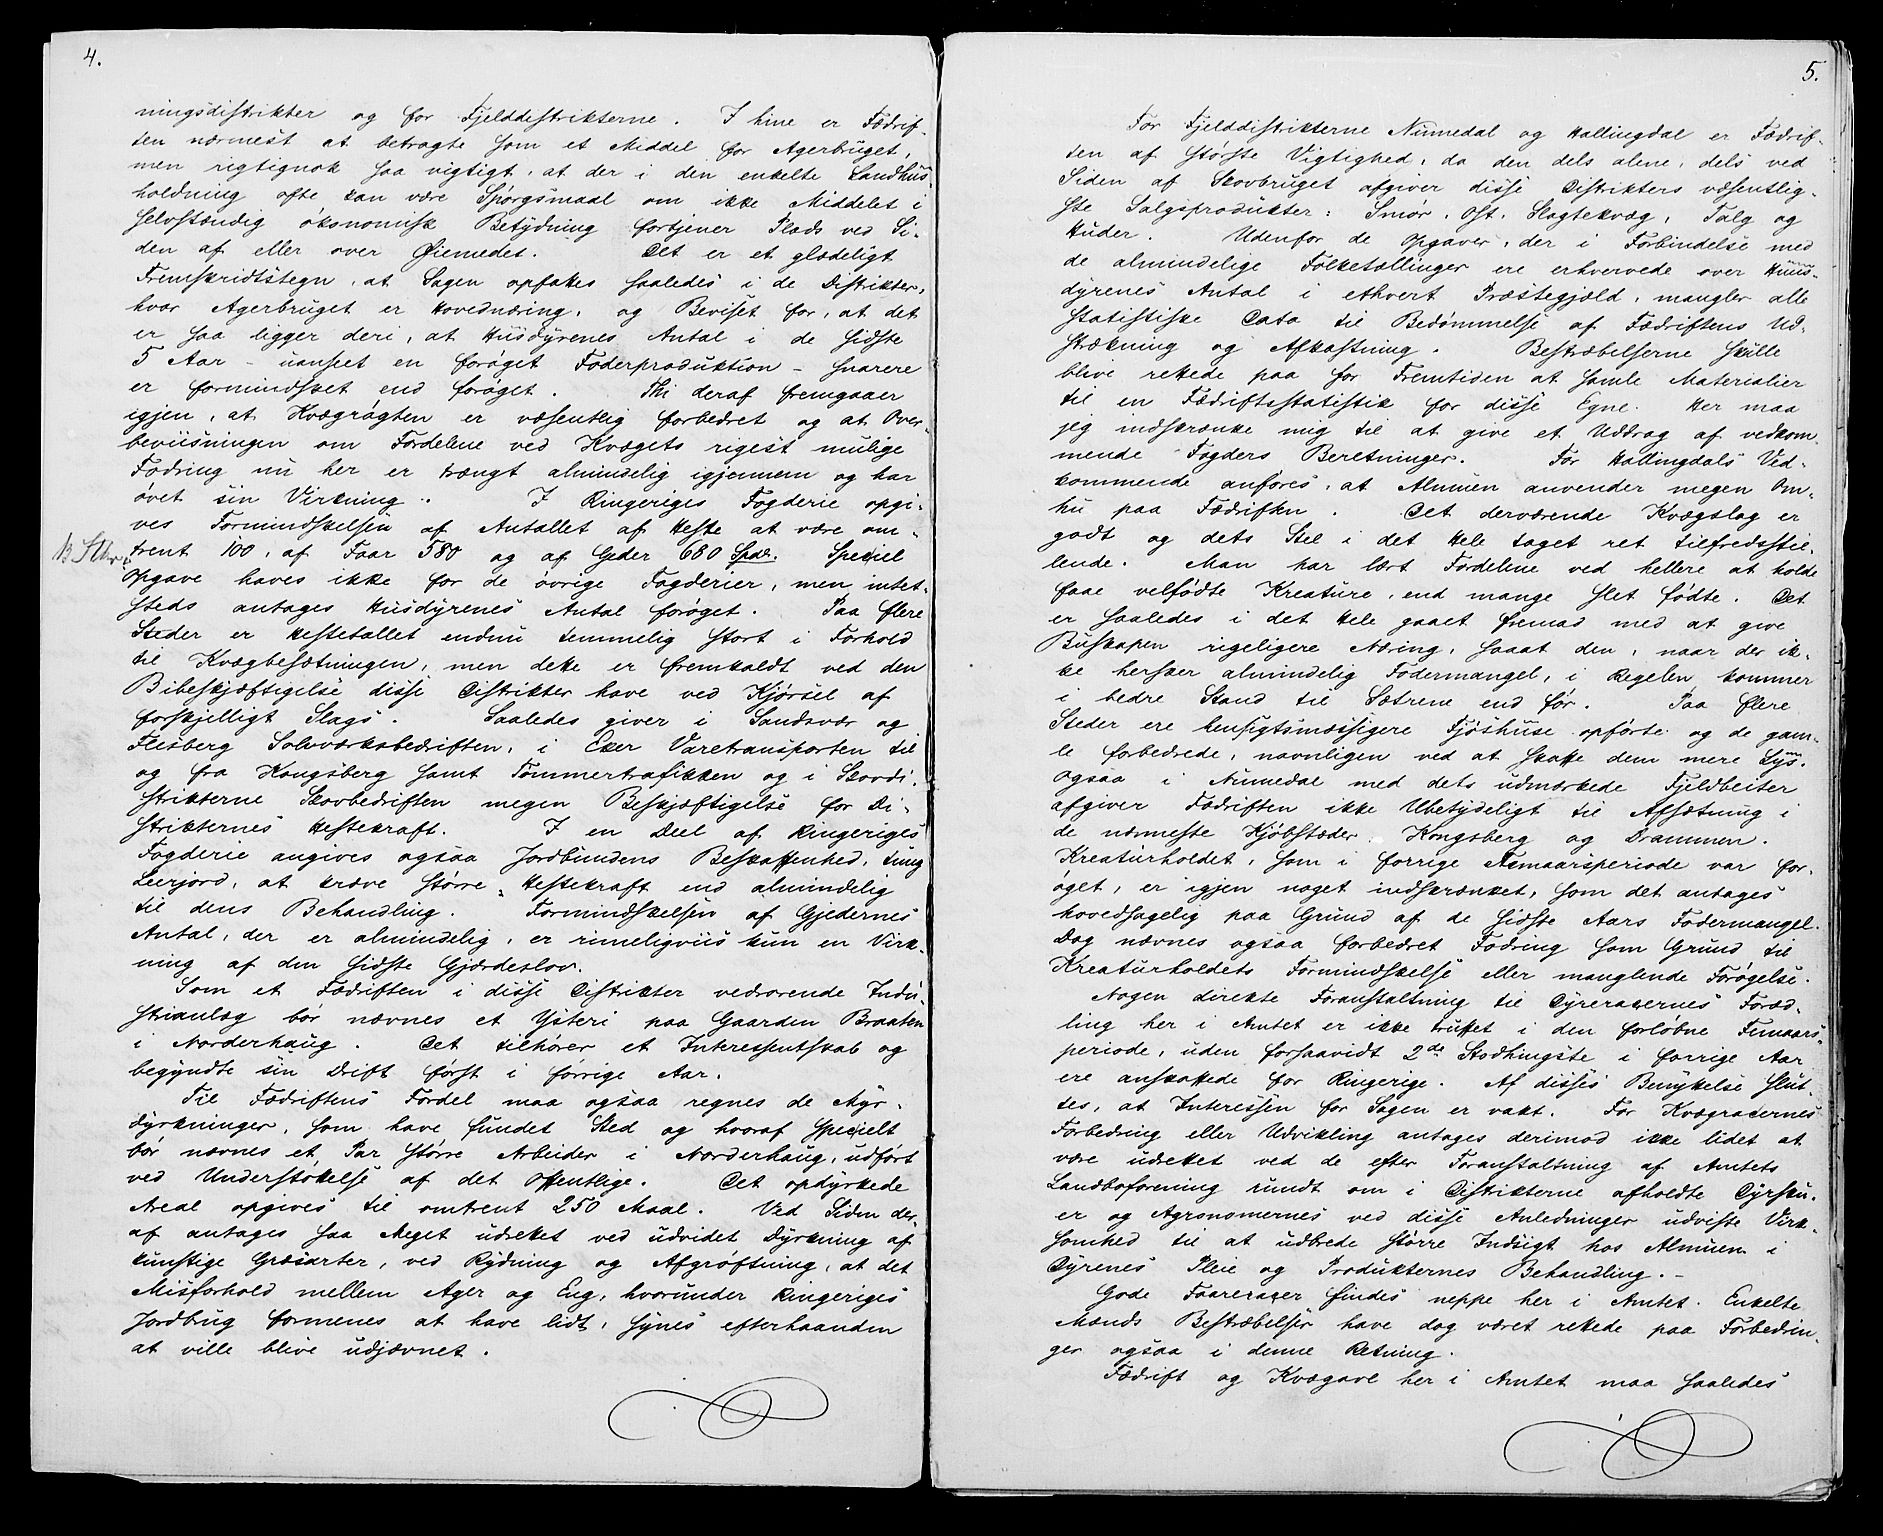 4.
ningsdistrikter og for Fjelddistrikterne. I hine er Fædrif-
ten nærmest at betragte som et Middel for Agerbruget,
men rigtignok saa vigtigt, at der i den enkelte Landhus-
holdning ofte kan være Spørgsmaal om ikke Middelet i
selvstændig økonomisk Betydning fortjener Plads ved Si-
den af eller over Øiemedet. Det er et glædeligt
Fremskridtstegn, at Sagen opfattes saaledes i de Distrikter,
hvor Agerbruget er Hovednæring, og Beviset for, at det
er saa ligger deri, at Husdyrenes Antal i de sidste
5 Aar - uanseet en forøget Foderproduktion - snarere
er formindsket end forøget. Thi deraf fremgaaer
igjen, at Kvægrøgten er væsentlig forbedret og at Over-
beviisningen om Fordelene ved Kvægets rigest mulige
Fodring nu her er trængt almindelig igjennem og har
øvet sin Virkning. I Ringeriges Fogderie opgi-
ves Formindskelsen af Antallet af Heste at være om-
trent 100, af Faar 580 og af Geder 660 Spdr. Speciel
Opgave haves ikke for de øvrige Fogderier, men intet-
steds antages Husdyrenes Antal forøget. Paa flere
Steder er Hestetallet endnu temmelig stort i Forhold
til Kvægbesætningen, men dette er fremkaldt ved den
Bibeskjæftigelse disse Distrikter have ved Kjørsel af
forskjelligt Slags. Saaledes giver i Sandsvær og
Flesberg Sølvværksbedriften, i Eker Varetransporten til
og fra Kongsberg samt Tømmertrafikken og i Skovdi-
strikterne Skovbedriften megen Beskjæftigelse for Di-
strikternes Hestekraft. I en Deel af Ringeriges
Fogderie angives ogsaa Jordbundens Beskaffenhed, tung
Leerjord, at kræve større Hestekraft end almindelig
til dens Behandling. Formindskelsen af Gjedernes
Antal, der er almindelig, er rimeligviis kun en Virk-
ning af den sidste Gjærdeslov.
Som et Fædriften i disse Distrikter vedrørende Indu-
strianlæg bør nævnes et Ysteri paa Gaarden Braaten
i Norderhaug. Det tilhører et Interessentskab og
begyndte sin Drift først i forrige Aar.
Til Fædriftens Fordel maa ogsaa regnes de Myr-
dyrkninger, som have fundet Sted og hvoraf specielt
bør nævnes et Par større Arbeider i Norderhaug, udført
ved Understøttelse af det Offentlige. Det opdyrkede
Areal opgives til omtrent 250 Maal. Ved Siden der-
af antages saa Meget udrettet ved udvidet Dyrkning af
kunstige Græsarter, ved Rydning og Afgrøftning, at det
Misforhold mellem Ager og Eng, hvorunder Ringeriges
Jordbrug formenes at have lidt, synes efterhaanden
at ville blive udjævnet.
5.
For Fjelddistrikterne Numedal og Hallingdal er Fædrif-
ten af største Vigtighed, da den dels alene, dels ved
Siden af Skovbruget afgiver disse Distrikters væsentlig-
ste Salgsprodukter: Smør, Ost, Slagtekvæg, Talg og
Huder. Udenfor de Opgaver, der i Forbindelse med
de almindelige Folketællinger ere erhvervede over Huus-
dyrenes Antal i ethvert Præstegjæld, mangler alle
statistiske Data til Bedømmelse af Fædriftens Ud-
strækning og Afkastning. Bestræbelserne skulle
blive rettede paa for Fremtiden at samle Materialier
til en Fædriftsstatistik for disse Egne. Her maa
jeg indskrænke mig til at give et Uddrag af vedkom-
mende Fogders Beretninger. For Hallingdals Ved-
kommende anføres, at Almuen anvender megen Om-
hu paa Fædriften. Det derværende Kvægslag er
godt og dets Stel i det Hele taget ret tilfredsstil-
lende. Man har lært Fordelene ved hellere at holde
faae velfødte Kreature, end mange slet fødte. Det
er saaledes i det Hele gaaet fremad med at give
Buskapen rigeligere Næring, saaat den, naar der ik-
ke hersker almindelig Fodermangel, i Regelen kommer
i bedre Stand til Sætrene end før. Paa flere
Steder ere hensigtsmæssigere Fjøshuse opførte og de gam-
le forbedrede, navnligen ved at skaffe dem mere Lys.
Ogsaa i Numedal med dets udmærkede Fjeldbeiter
afgiver Fædriften ikke Ubetydeligt til Afsætning i
de nærmeste Kjøbstæder Kongsberg og Drammen.
Kreaturholdet, som i forrige Femaarsperiode var for-
øget, er igjen noget indskrænket, som det antages
hovedsagelig paa Grund af de sidste Aars Fodermangel.
Dog nævnes ogsaa forbedret Fodring som Grund til
Kreaturholdets Formindskelse eller manglende Forøgelse.
Nogen direkte Foranstaltning til Dyreracernes Foræd-
ling her i Amtet er ikke truffet i den forløbne Femaars-
periode, uden forsaavidt 2de Stodhingste i forrige Aar
ere anskaffede for Ringerige. Af disses Benyttelse slut-
tes, at Interessen for Sagen er vakt. For Kvægracernes
Forbedring eller Udvikling antages derimod ikke lidet at
være udrettet ved de efter Foranstaltning af Amtets
Landboforening rundt om i Distrikterne afholdte Dyrsku-
er og Agronomernes ved disse Anledninger udviste Virk-
somhed til at udbrede større Indsigt hos Almuen i
Dyrenes Pleie og Produkternes Behandling. -
Gode Faareracer findes neppe her i Amtet. Enkelte
Mænds Bestræbelser have dog været rettede paa Forbedrin-
ger ogsaa i denne Retning.
Fædrift og Kvægavl her i Amtet maa saaledes